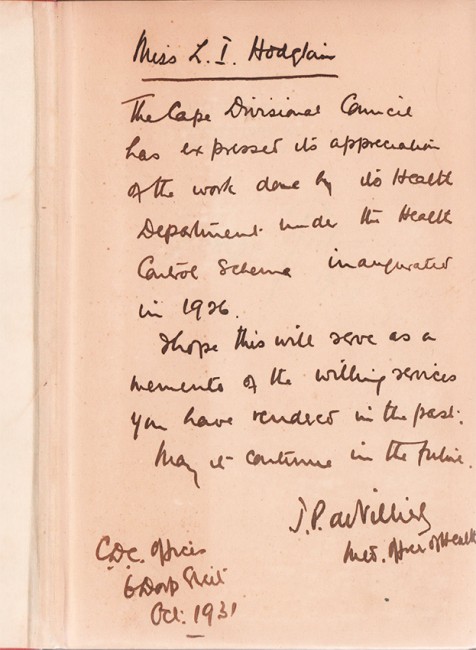 Miss L. I. Hodgkin
The Cape Divisional Council
has expressed its appreciation
of the work done by its Health
Department under the Health
Control Scheme inaugurated
in 1926.
I hope this will serve as a
memento of the willing services
you have rendered in the past.
May it continue in the future.
J. P. de Villiers
Med. Officer of Health
C.D.C. Offices
6 Dorp Street
Oct. 1931